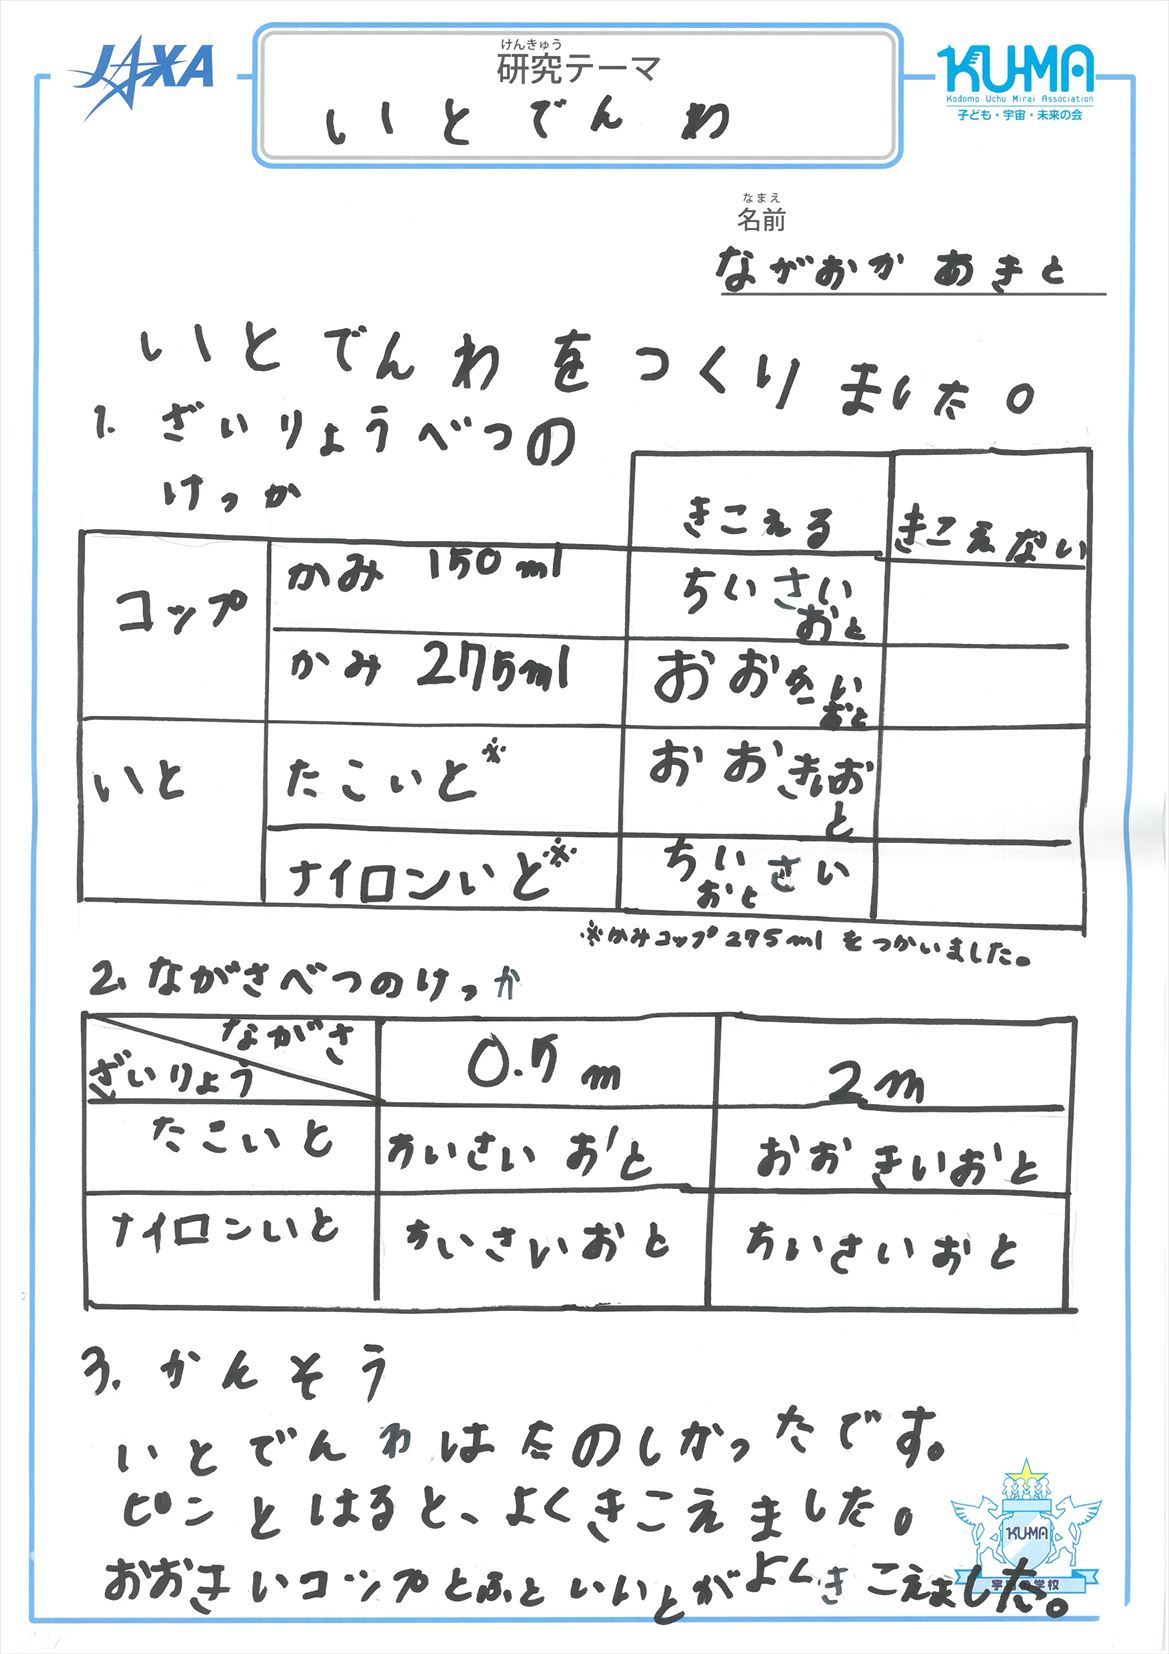 JAXA
けんきゅう
研究テーマ
いとでんわ
KU-MA
Kodomo Uchu Mirai Association
子ども・宇宙・未来の会
なまえ
名前
ながおか あきと
いとでんわをつくりました。
1. ざいりょうべつの
けっか
きこえる きこえない
コップ かみ 150ml ちいさいおと
かみ 275ml おおきいおと
いと たこいと※ おおきいおと
ナイロンいと※ ちいさいおと
※かみコップ275mlをつかいました。
2. ながさべつのけっか
ながさ
ざいりょう 0.5m 2m
たこいと ちいさいおと おおきいおと
ナイロンいと ちいさいおと ちいさいおと
3. かんそう
いとでんわはたのしかったです。
ピンとはると、よくきこえました。
おおきいコップとふといいとがよくきこえました。
KU-MA